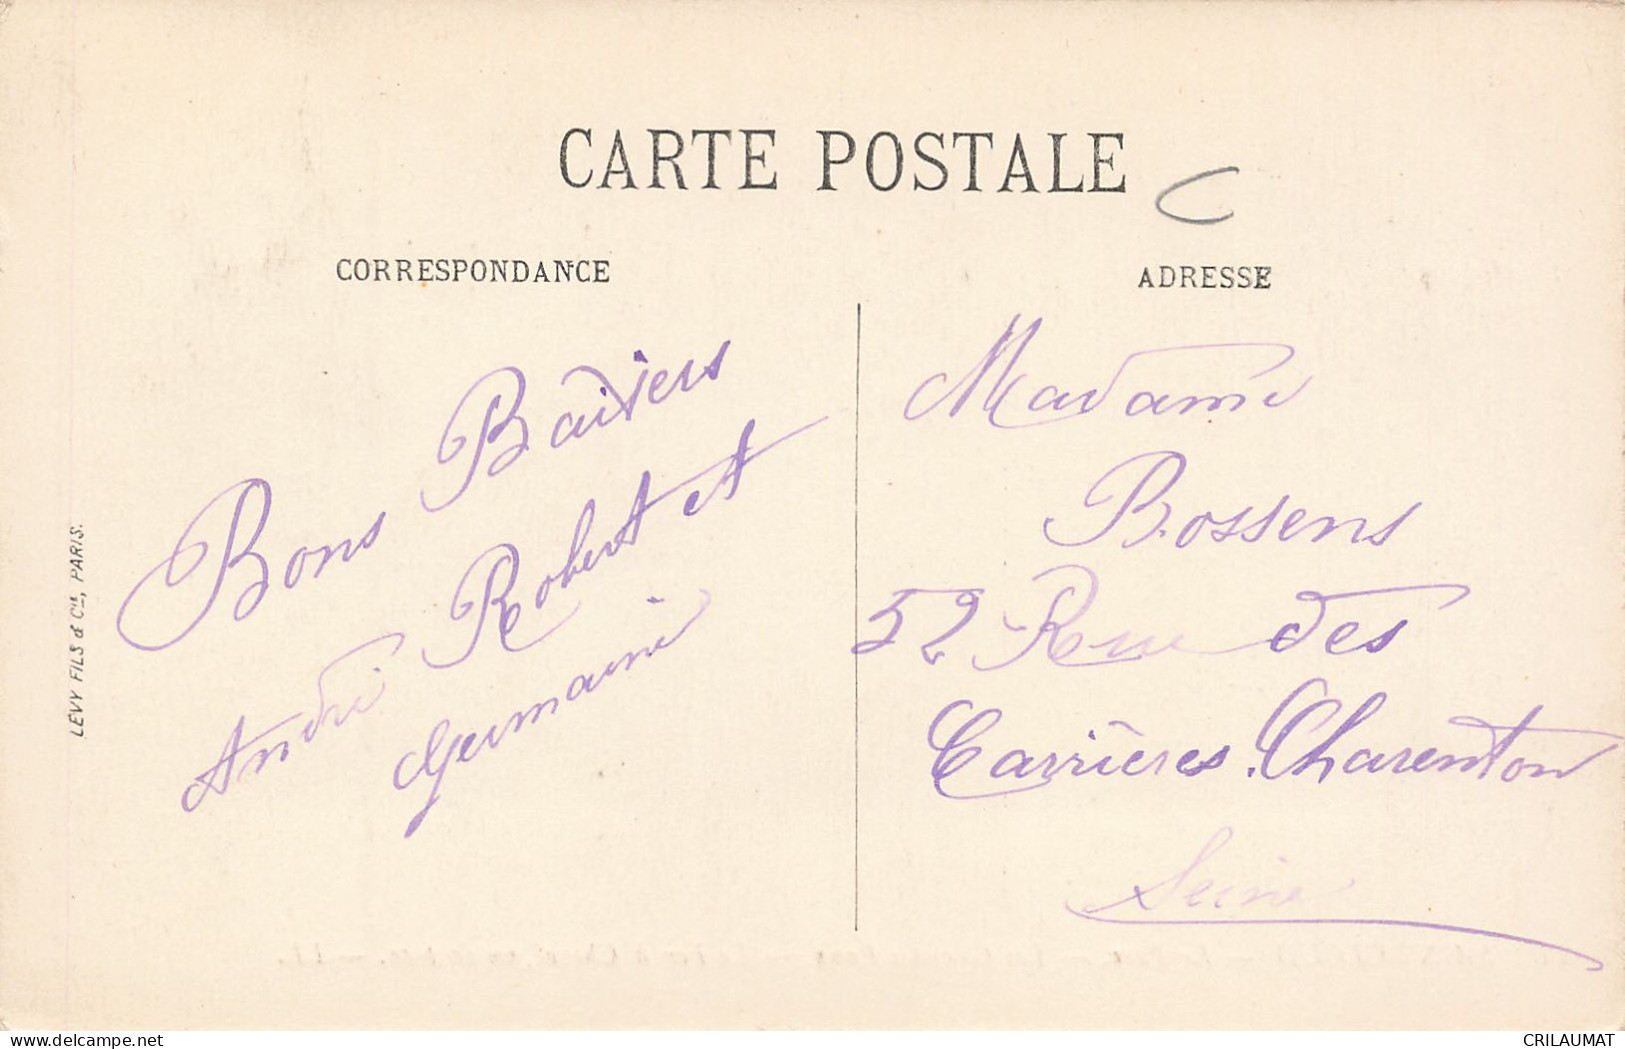 CARTE POSTALE
C
CORRESPONDANCE
ADRESSE
Bons Baisers
André Robert et
Germaine
LEVY FILS & Cie, PARIS.
Madame
Bossens
52 Rue des
Carrières. Charenton
Seine
delcampe.net
CRILAUMAT